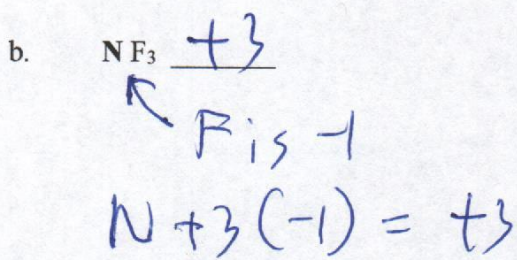 b. N F₃ +3
F is -1
N +3(-1) = +3